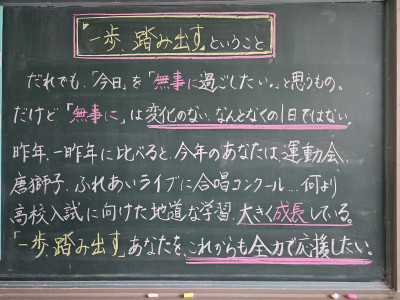 「一歩、踏み出す」ということ
だれでも、「今日」を「無事に過ごしたい。」と思うもの。
だけど「無事に」は変化のない、なんとなくの1日ではない。
昨年、一昨年に比べると、今年のあなたは、運動会、
唐獅子、ふれあいライブに合唱コンクール…何より
高校入試に向けた地道な学習、大きく成長している。
「一歩、踏み出す」あなたを、これからも全力で応援したい。